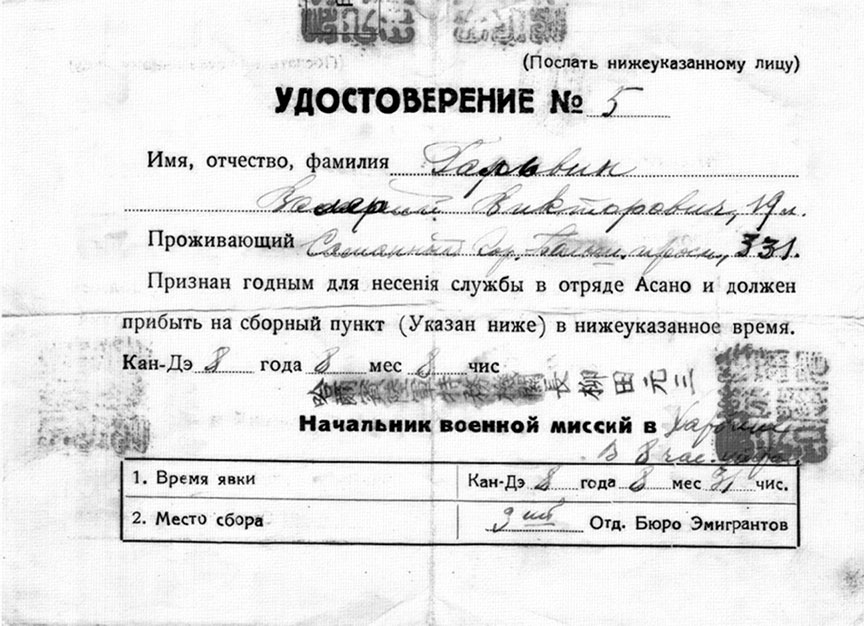 (Послать нижеуказанному лицу)
УДОСТОВЕРЕНИЕ № 5
Имя, отчество, фамилия Гарвин
Викторович, 19 л.
Проживающий 331.
Признан годным для несенія службы в отряде Асано и должен
прибыть на сборный пункт (Указан ниже) в нижеуказанное время.
Кан-Дэ 8 года 8 мес 8 чис
哈爾濱陸軍特務機關長 柳田元三
Начальник военной миссий в Харбине
В 8 час. утра.
1. Время явки Кан-Дэ 8 года 8 мес 31 чис.
2. Место сбора Отд. Бюро Эмигрантов